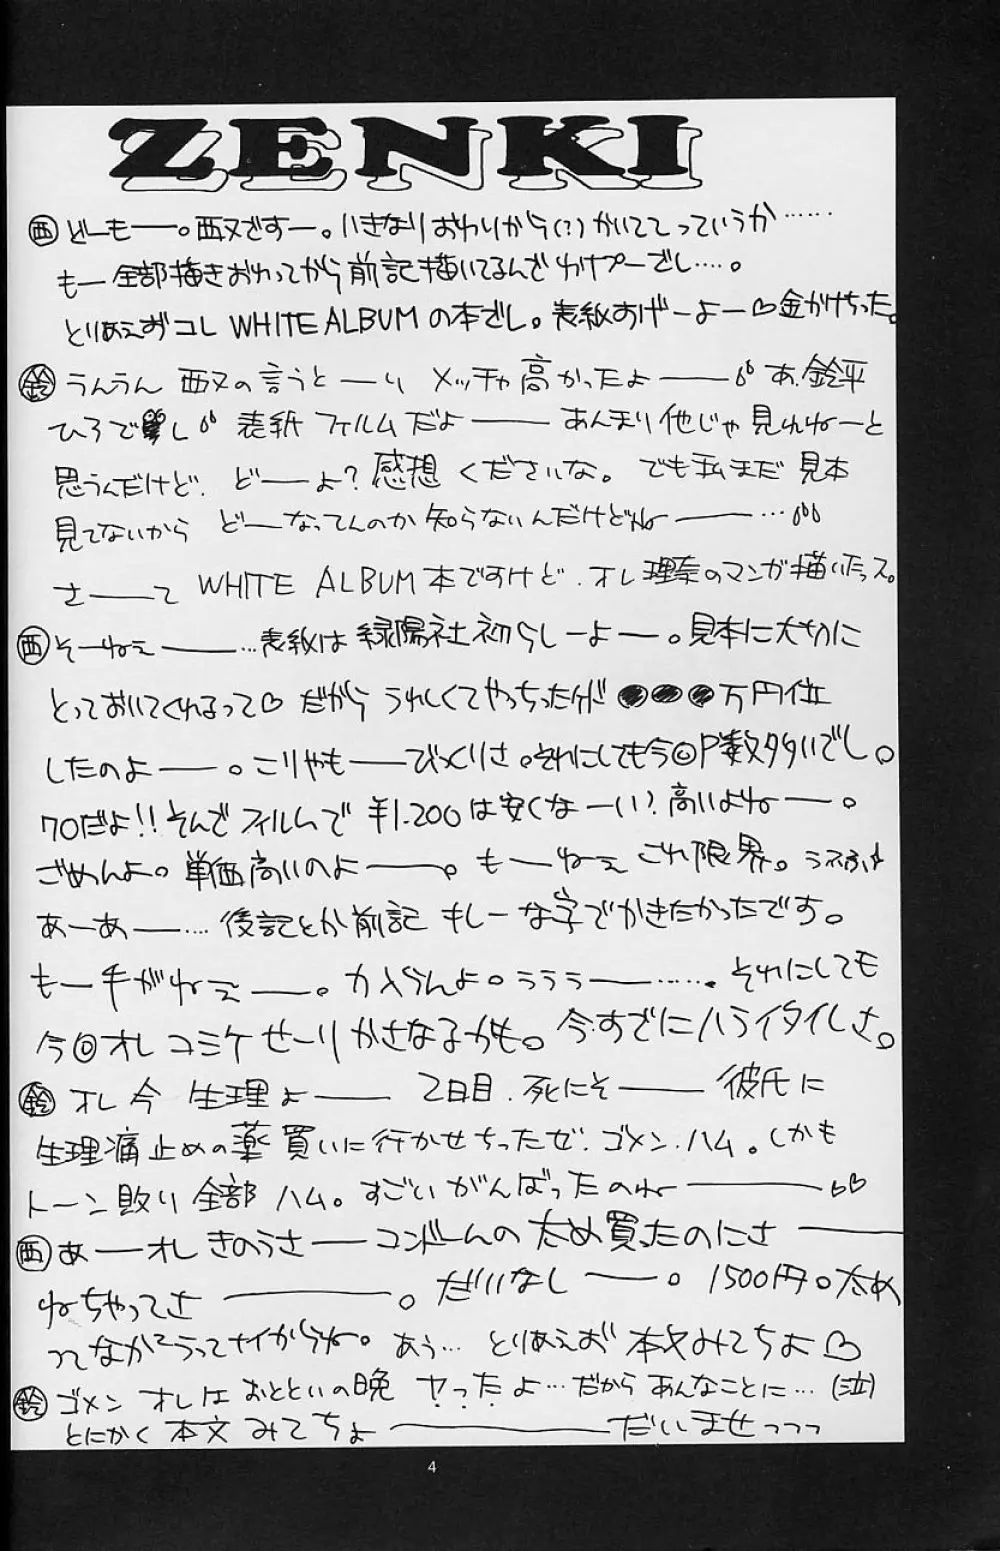 ZENKI
西 どーもー。西又ですー。いきなりおわりから(?)かいててっていうか……
もー全部描きおわってから前記描いてるんでわけプーでし…。
とりあえずコレWHITE ALBUMの本でし。表紙すげーよー♡金かけちった。
鈴 うんうん 西又の言うとーり メッチャ高かったよー あ、鈴平
ひろでし 表紙フィルムだよー あんまり他じゃ見れねーと
思うんだけど、どーよ?感想くださいな。でも私まだ見本
見てないから どーなってんのか知らないんだけどねー…
さーて WHITE ALBUM本ですけど、オレ理奈のマンガ描いたっス。
西 そーねぇー…表紙は緑陽社初らしーよー。見本に大さかに
とっておいてくれるって♡だから うれしくてやっちったが ●●●万円位
したのよー。こりゃもーびっくりさ。それにしても今回P数多いでし。
70だよ!!そんでフィルムで¥1.200は安くなーい?高いよねー。
ごめんよ。単価高いのよー。もーねぇ これ限界。うふふ
あーあー…後記とか前記 キレーな字でかきたかったです。
もー手がねぇー。力入らんよ。ううぅー……。それにしても
今回オレ コミケせーりかさなるかも。今すでにハライタイしさ。
鈴 オレ今 生理よー 2日目、死にそー 彼氏に
生理痛止めの薬買いに行かせちったぜ、ゴメン、ハム。しかも
トーン貼り全部ハム。すごいがんばったのねー♡♡
西 あーオレ きのうさーコンドームの太め買ったのにさー
ねちゃってさー。だいなしー。1500円。太め
ってなかなかうってナイからね。あぅ…とりあえず 本文みてちょ♡
鈴 ゴメン オレはおとといの晩 ヤったよ…だから あんなことに…(泣)
とにかく 本文みてちょー だいませっっっ
4